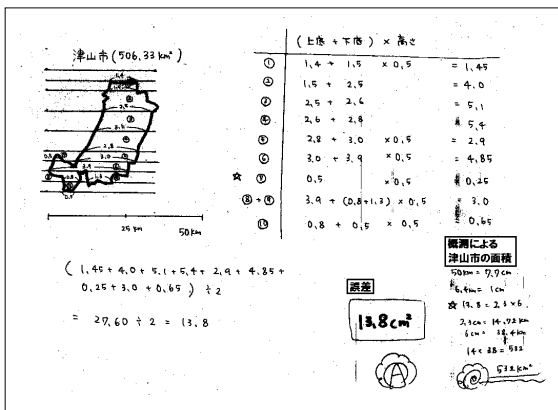 津山市(506.33km²)
(上底 + 下底) × 高さ
① 1.4 + 1.5 ×0.5 = 1.45
② 1.5 + 2.5 = 4.0
③ 2.5 + 2.6 = 5.1
④ 2.6 + 2.8 = 5.4
⑤ 2.8 + 3.0 ×0.5 = 2.9
⑥ 3.0 + 3.9 ×0.5 = 4.85
☆ ⑦ 0.5 ×0.5 = 0.25
⑧+⑨ 3.9 + (0.8+1.3) × 0.5 = 3.0
⑩ 0.8 + 0.5 × 0.5 = 0.65
25km 50km
(1.45+4.0+5.1+5.4+2.9+4.85+
0.25+3.0+0.65) ÷2
= 27.60 ÷2 = 13.8
誤差
13.8cm²
A
概測による
津山市の面積
50km = 7.7cm
6.4km = 1cm
☆ 13.8 = 2.3×6
2.3cm = 14.72km
6cm = 38.4km
14×38 = 532
532km²